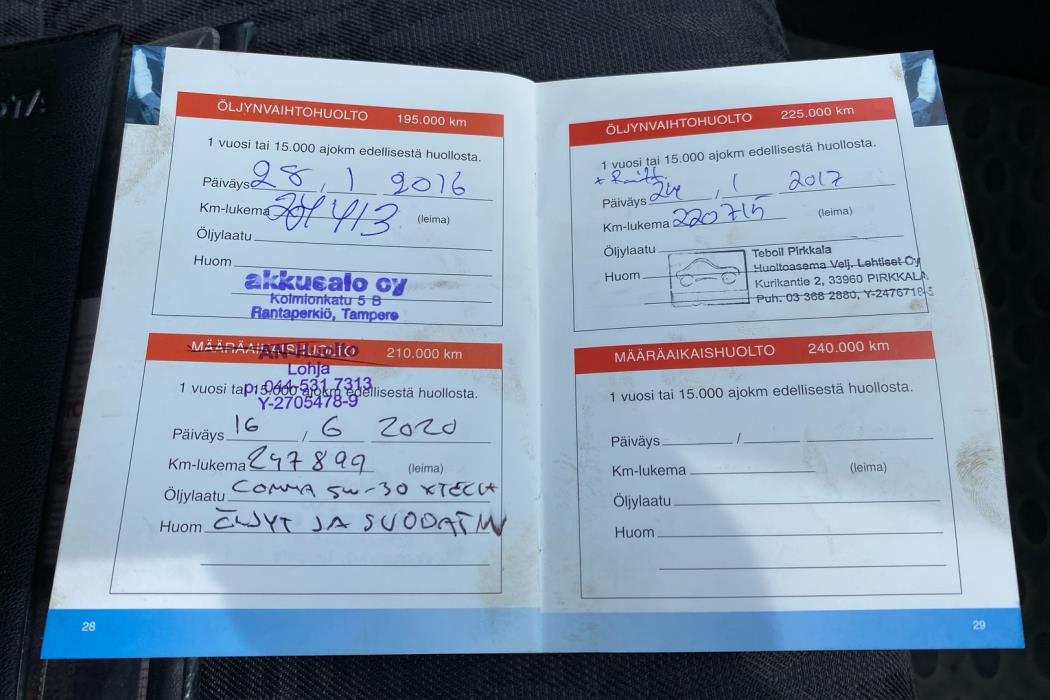 ÖLJYNVAIHTOHUOLTO 195.000 km
1 vuosi tai 15.000 ajokm edellisestä huollosta.
Päiväys 28 / 1 2016
Km-lukema 413 (leima)
Öljylaatu
Huom
akkusalo oy
Kolmionkatu 5 B
Rantaperkiö, Tampere
MÄÄRÄAIKAISHUOLTO 210.000 km
AN-Huolto
Lohja
p. 044-531 7313
Y-2705478-9
1 vuosi tai 15.000 ajokm edellisestä huollosta.
Päiväys 16 / 6 2020
Km-lukema 247899 (leima)
Öljylaatu COMMA 5W-30 XTECH
Huom ÖLJYT JA SUODATIN
28
ÖLJYNVAIHTOHUOLTO 225.000 km
1 vuosi tai 15.000 ajokm edellisestä huollosta.
Päiväys 24 / 1 2017
Km-lukema 220715 (leima)
Öljylaatu
Huom
Teboil Pirkkala
Huoltoasema Velj. Lehtiset Oy
Kurikantie 2, 33960 PIRKKALA
Puh. 03 368 2880, Y-2476718-3
MÄÄRÄAIKAISHUOLTO 240.000 km
1 vuosi tai 15.000 ajokm edellisestä huollosta.
Päiväys /
Km-lukema (leima)
Öljylaatu
Huom
29